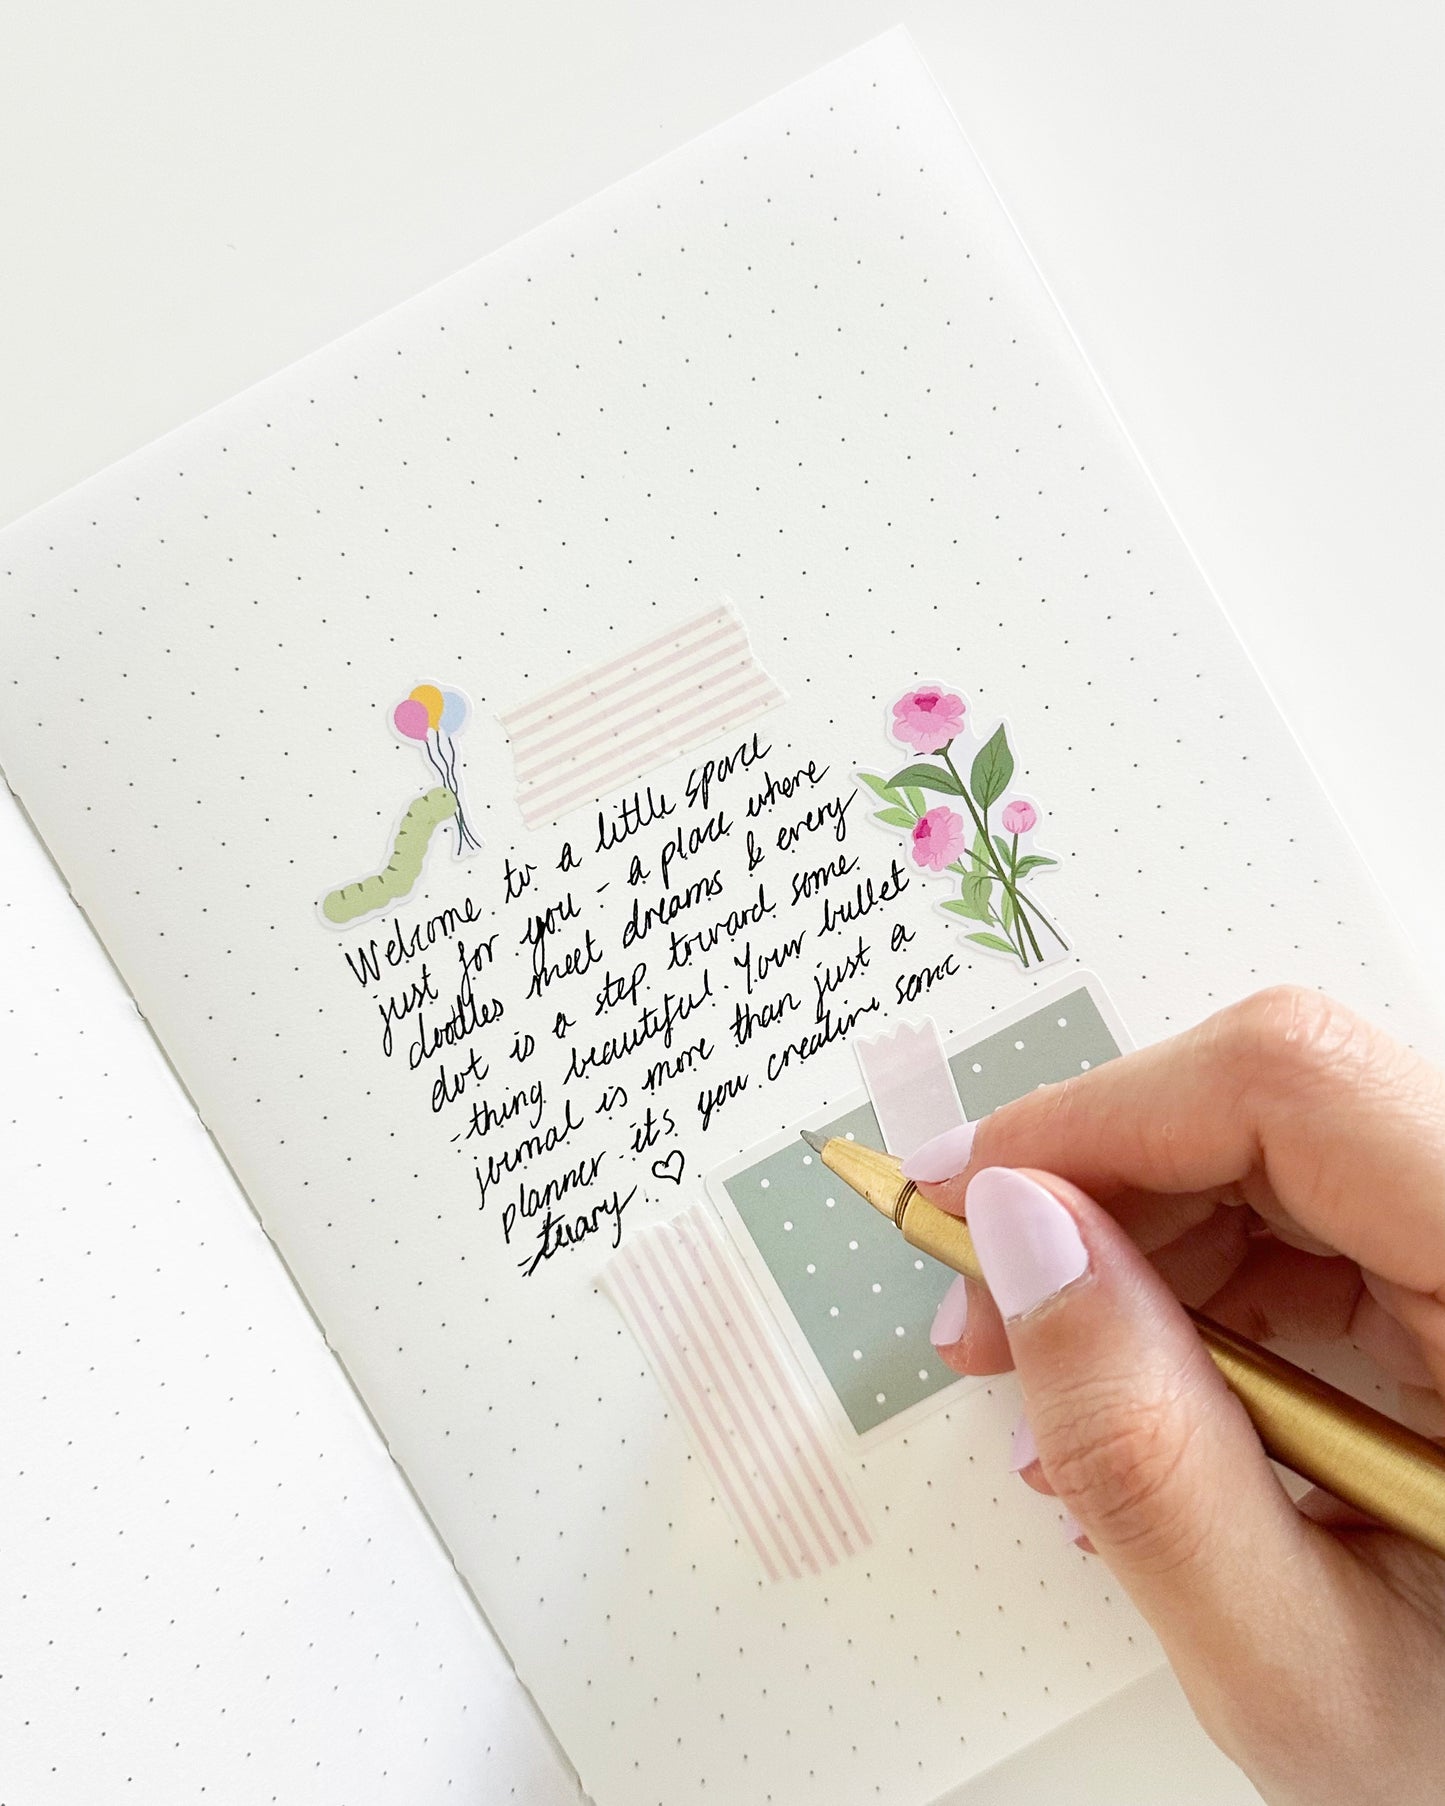 Welcome to a little space
just for you - a place where
doodles meet dreams & every
dot is a step toward some
-thing beautiful. Your bullet
journal is more than just a
planner - its you creative sanc
-tuary ♡